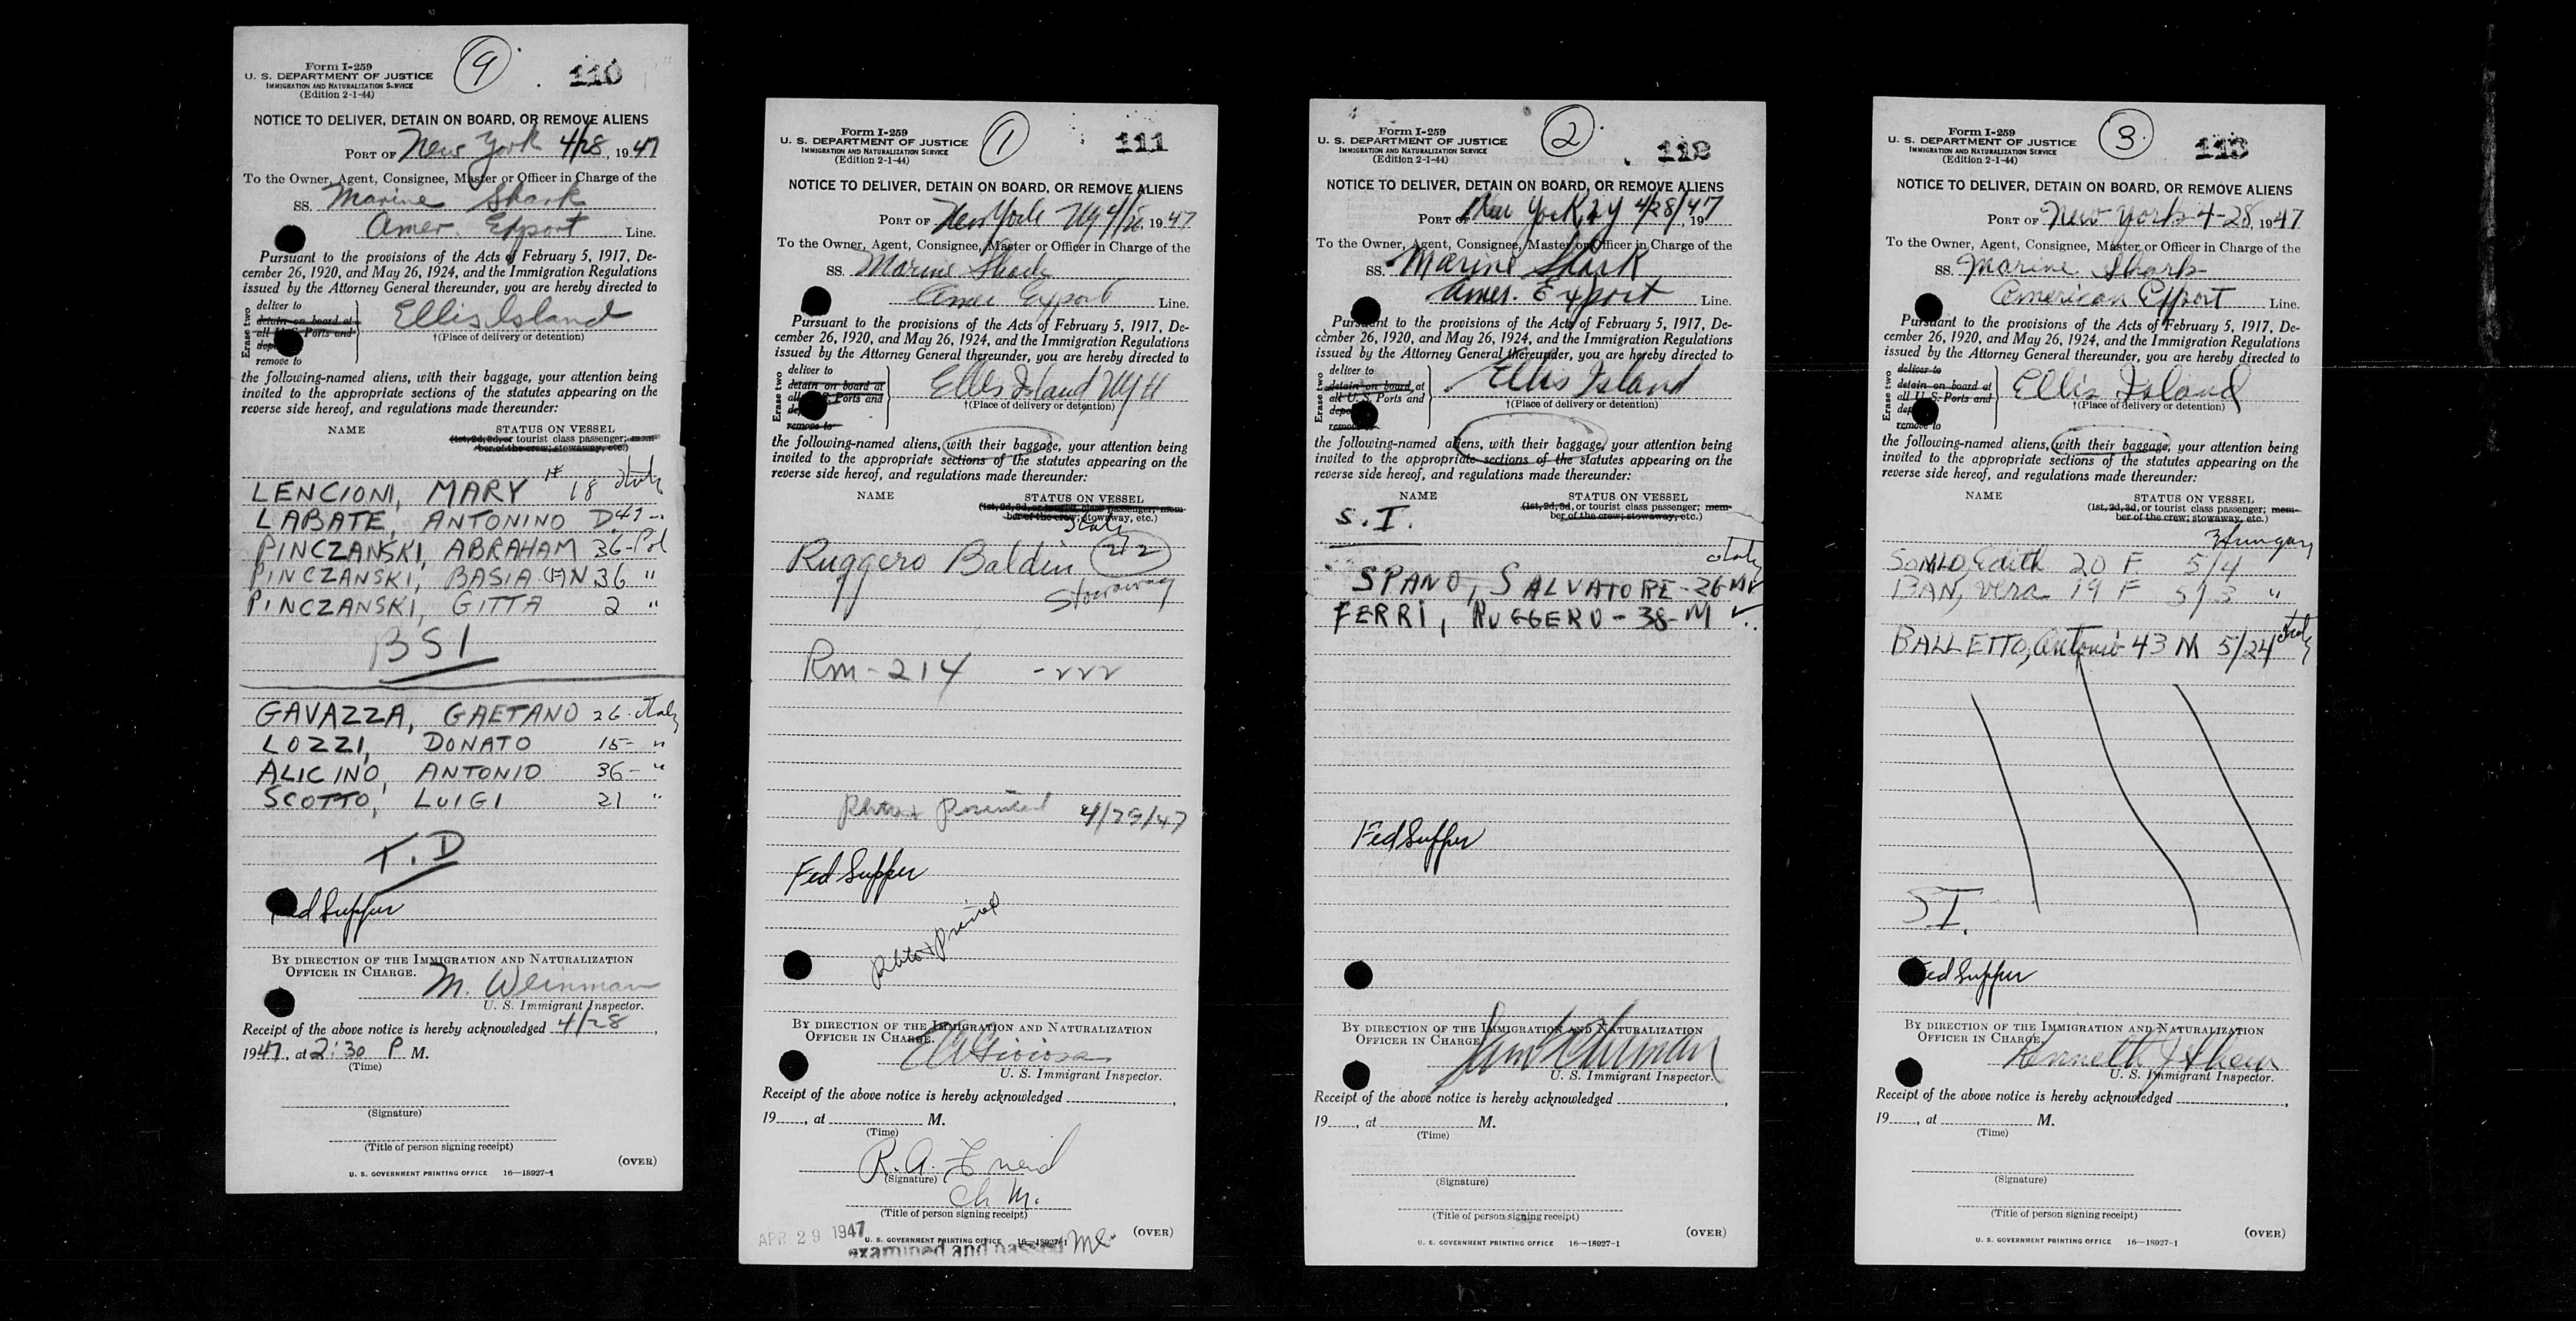 Form I-259
U. S. DEPARTMENT OF JUSTICE
IMMIGRATION AND NATURALIZATION SERVICE
(Edition 2-1-44)
9
110
NOTICE TO DELIVER, DETAIN ON BOARD, OR REMOVE ALIENS
PORT OF New York 4/28, 1947
To the Owner, Agent, Consignee, Master or Officer in Charge of the
SS. Marine Shark
Amer. Export Line.
Pursuant to the provisions of the Acts of February 5, 1917, De-
cember 26, 1920, and May 26, 1924, and the Immigration Regulations
issued by the Attorney General thereunder, you are hereby directed to
Erase two
deliver to
detain on board at
all U. S. Ports and
remove to
Ellis Island
†(Place of delivery or detention)
the following-named aliens, with their baggage, your attention being
invited to the appropriate sections of the statutes appearing on the
reverse side hereof, and regulations made thereunder:
NAME STATUS ON VESSEL
(1st, 2d, 3d, or tourist class passenger; mem-
ber of the crew; stowaway, etc.)
LENCIONI, MARY 18 Italy
LABATE, ANTONINO D. 47 -
PINCZANSKI, ABRAHAM 36-Pol
PINCZANSKI, BASIA (H)N 36 "
PINCZANSKI, GITTA 2 "
BSI
GAVAZZA, GAETANO 26. Italy
LOZZI, DONATO 15- "
ALICINO, ANTONIO 36- "
SCOTTO, LUIGI 21 "
T. D
Fed Supper
BY DIRECTION OF THE IMMIGRATION AND NATURALIZATION
OFFICER IN CHARGE.
M. Weinman
U. S. Immigrant Inspector.
Receipt of the above notice is hereby acknowledged 4/28,
1947, at 2:30 P M.
(Time)
(Signature)
(Title of person signing receipt)
(OVER)
U. S. GOVERNMENT PRINTING OFFICE 16—18927-1
Form I-259
U. S. DEPARTMENT OF JUSTICE
IMMIGRATION AND NATURALIZATION SERVICE
(Edition 2-1-44)
1
111
NOTICE TO DELIVER, DETAIN ON BOARD, OR REMOVE ALIENS
PORT OF New York NY 4/28 1947
To the Owner, Agent, Consignee, Master or Officer in Charge of the
SS. Marine Shark
Amer Export Line.
Pursuant to the provisions of the Acts of February 5, 1917, De-
cember 26, 1920, and May 26, 1924, and the Immigration Regulations
issued by the Attorney General thereunder, you are hereby directed to
Erase two
deliver to
detain on board at
all U. S. Ports and
remove to
Ellis Island NYH
†(Place of delivery or detention)
the following-named aliens, with their baggage, your attention being
invited to the appropriate sections of the statutes appearing on the
reverse side hereof, and regulations made thereunder:
NAME STATUS ON VESSEL
(1st, 2d, 3d, or tourist class passenger; mem-
ber of the crew; stowaway, etc.)
Italy
Ruggero Baldin
Stowaway
Rm-214
photo + printed 4/29/47
Fed Supper
photo + printed
BY DIRECTION OF THE IMMIGRATION AND NATURALIZATION
OFFICER IN CHARGE.
U. S. Immigrant Inspector.
Receipt of the above notice is hereby acknowledged
19 , at M.
(Time)
R. A.
(Signature)
Ch. M.
(Title of person signing receipt)
(OVER)
APR 29 1947
U. S. GOVERNMENT PRINTING OFFICE 16—18927-1
examined and passed
Form I-259
U. S. DEPARTMENT OF JUSTICE
IMMIGRATION AND NATURALIZATION SERVICE
(Edition 2-1-44)
2
112
NOTICE TO DELIVER, DETAIN ON BOARD, OR REMOVE ALIENS
PORT OF New York, NY 4/28/47, 19
To the Owner, Agent, Consignee, Master or Officer in Charge of the
SS. Marine Shark
Amer. Export Line.
Pursuant to the provisions of the Acts of February 5, 1917, De-
cember 26, 1920, and May 26, 1924, and the Immigration Regulations
issued by the Attorney General thereunder, you are hereby directed to
Erase two
deliver to
detain on board at
all U. S. Ports and
remove to
Ellis Island
†(Place of delivery or detention)
the following-named aliens, with their baggage, your attention being
invited to the appropriate sections of the statutes appearing on the
reverse side hereof, and regulations made thereunder:
NAME STATUS ON VESSEL
(1st, 2d, 3d, or tourist class passenger; mem-
ber of the crew; stowaway, etc.)
S. I.
Italy
SPANO, SALVATORE - 26 M ✓
FERRI, RUGGERO - 38 - M ✓
Fed Supper
BY DIRECTION OF THE IMMIGRATION AND NATURALIZATION
OFFICER IN CHARGE.
U. S. Immigrant Inspector.
Receipt of the above notice is hereby acknowledged
19 , at M.
(Time)
(Signature)
(Title of person signing receipt)
(OVER)
U. S. GOVERNMENT PRINTING OFFICE 16—18927-1
Form I-259
U. S. DEPARTMENT OF JUSTICE
IMMIGRATION AND NATURALIZATION SERVICE
(Edition 2-1-44)
3
113
NOTICE TO DELIVER, DETAIN ON BOARD, OR REMOVE ALIENS
PORT OF New York 4-28, 1947
To the Owner, Agent, Consignee, Master or Officer in Charge of the
SS. Marine Shark
American Export Line.
Pursuant to the provisions of the Acts of February 5, 1917, De-
cember 26, 1920, and May 26, 1924, and the Immigration Regulations
issued by the Attorney General thereunder, you are hereby directed to
Erase two
deliver to
detain on board at
all U. S. Ports and
remove to
Ellis Island
†(Place of delivery or detention)
the following-named aliens, with their baggage, your attention being
invited to the appropriate sections of the statutes appearing on the
reverse side hereof, and regulations made thereunder:
NAME STATUS ON VESSEL
(1st, 2d, 3d, or tourist class passenger; mem-
ber of the crew; stowaway, etc.)
Hungary
SOMLO, Edith 20 F 5/4
BAN, Vera 19 F 5/3 "
BALLETTO, Antonio 43 M 5/24 Italy
SI.
Fed Supper
BY DIRECTION OF THE IMMIGRATION AND NATURALIZATION
OFFICER IN CHARGE.
Kenneth J Ahern
U. S. Immigrant Inspector.
Receipt of the above notice is hereby acknowledged
19 , at M.
(Time)
(Signature)
(Title of person signing receipt)
(OVER)
U. S. GOVERNMENT PRINTING OFFICE 16—18927-1